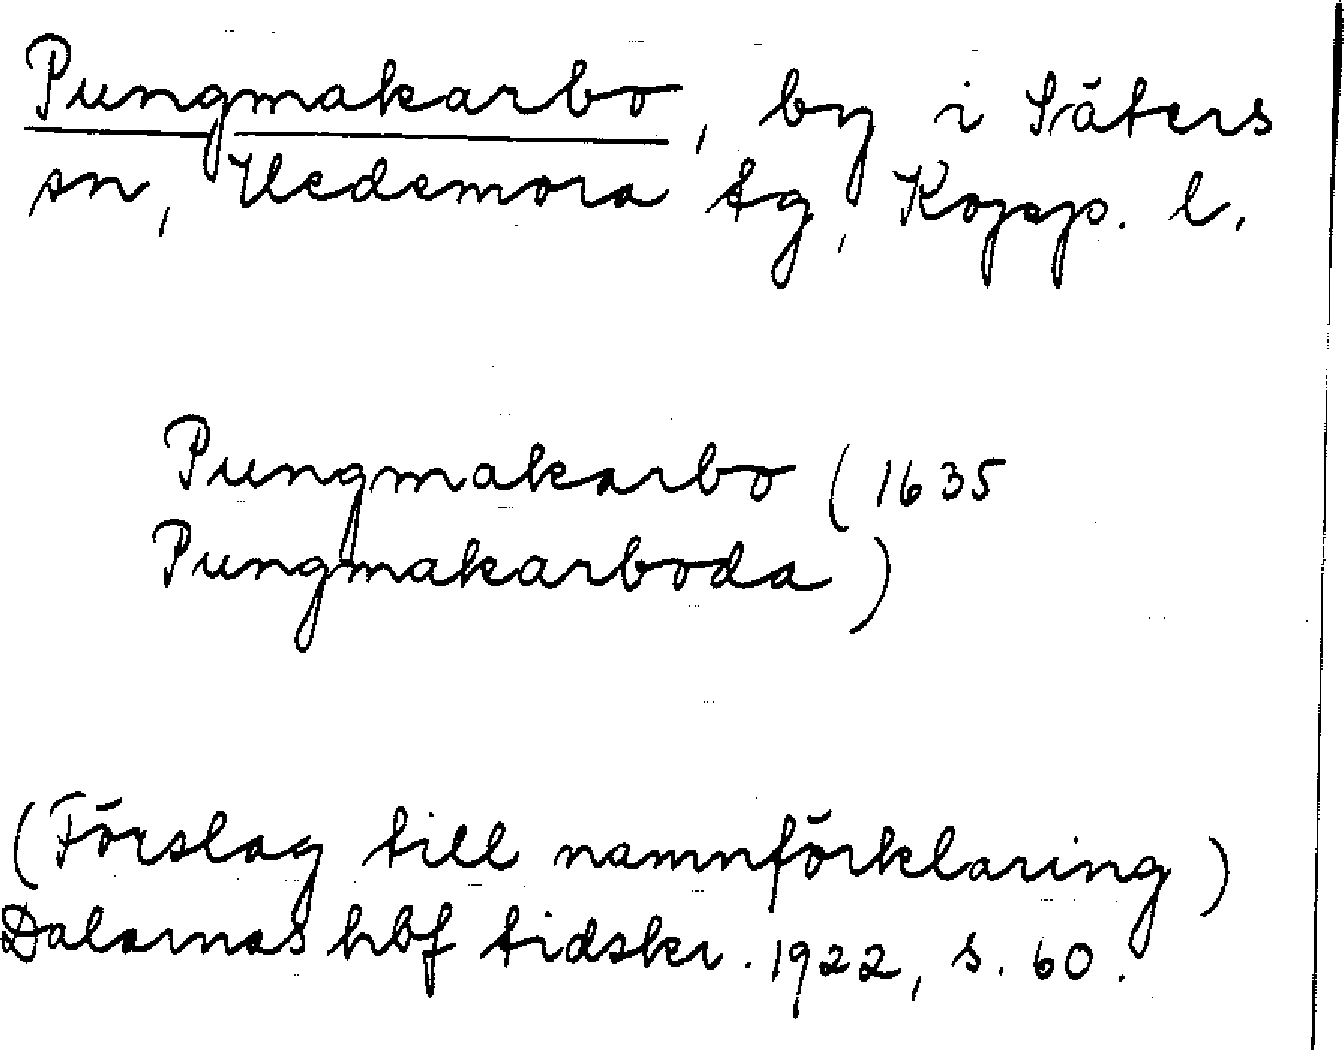 Pungmakarbo, by i Säters
sn, Hedemora tg, Kopp. l.
Pungmakarbo (1635
Pungmakarboda)
(Förslag till namnförklaring)
Dalarnas hbf tidskr. 1922, s. 60.